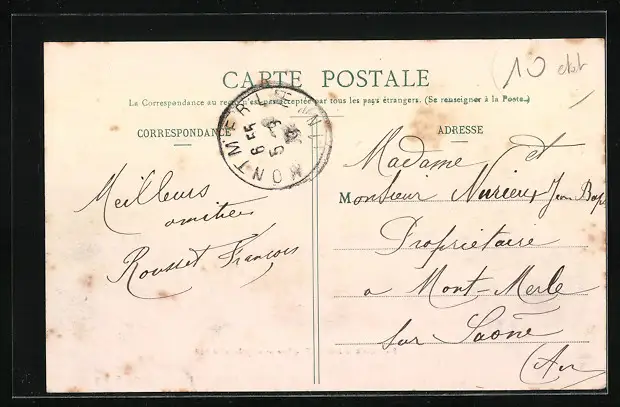 10
CARTE POSTALE
La Correspondance au recto n'est pas acceptée par tous les pays étrangers. (Se renseigner à la Poste.)
CORRESPONDANCE
ADRESSE
MONTMERLE
Meilleurs
amitiés
Rousset François
Madame et
Monsieur Nurieux Jean Bap
Propriétaire
a Mont-Merle
sur Saône
(Ain